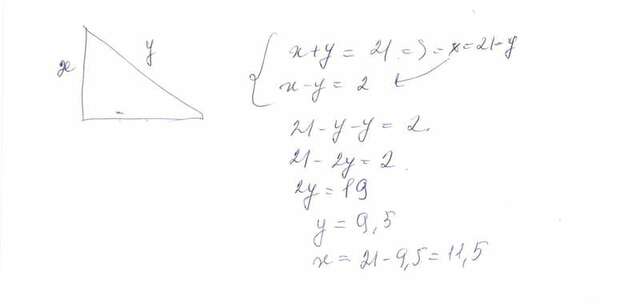 x
y
x+y = 21 => x=21-y
x-y = 2
21-y-y = 2
21-2y = 2
2y = 19
y = 9,5
x = 21-9,5 = 11,5